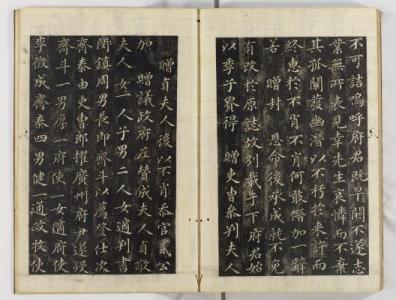 不可詰嗚呼府君既早闡不遂志
業無所表見幸先生哀憐而不棄
其孤闡發幽潛以不朽於來許而
終惠於不肖不肖何敢僭加一辭
若 贈封 恩命後承成就不免
有攷於原誌故別載于下府君始
以季子貴得 贈吏曹參判夫人
贈貞夫人後以不肖忝官貳公
加 贈議政府左贊成夫人貞敬
夫人女一人子男二人女適判書
閔鎮周男長即齊斗以蔭登仕次
齊泰由吏曹郎擢廣州府尹遂歿
齊斗一男厚一府使一女適府使
李徵成齊泰四男健一通政牧使